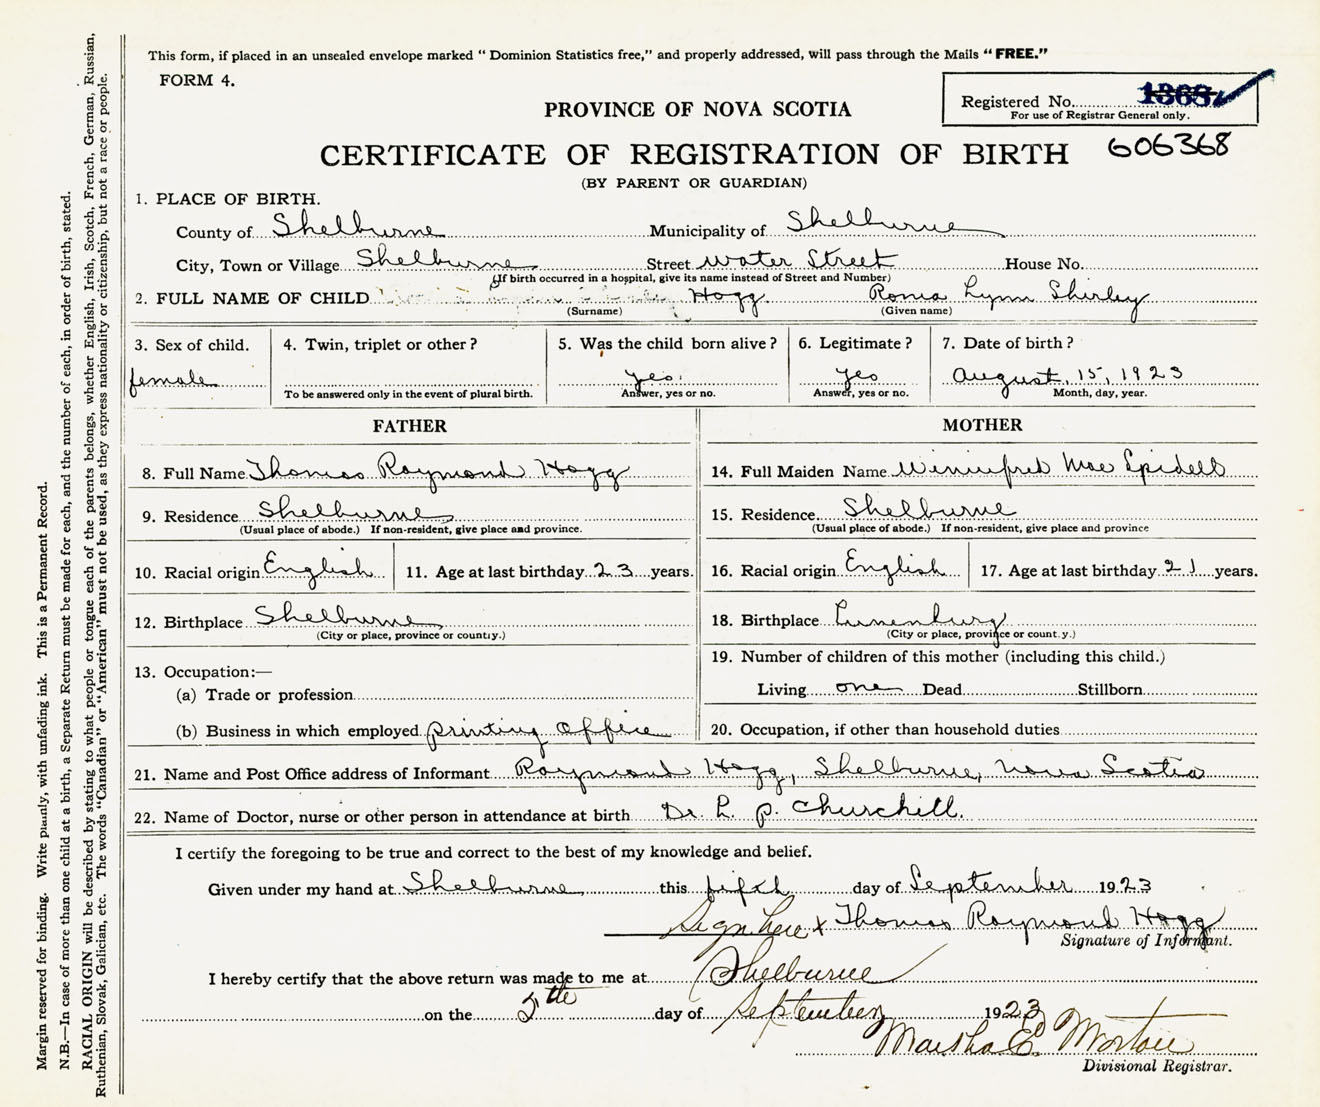 This form, if placed in an unsealed envelope marked " Dominion Statistics free," and properly addressed, will pass through the Mails " FREE."
FORM 4.
Registered No. 1368
For use of Registrar General only.
PROVINCE OF NOVA SCOTIA
CERTIFICATE OF REGISTRATION OF BIRTH 606368
(BY PARENT OR GUARDIAN)
1. PLACE OF BIRTH.
County of Shelburne Municipality of Shelburne
City, Town or Village Shelburne Street Water Street House No.
(If birth occurred in a hospital, give its name instead of Street and Number)
2. FULL NAME OF CHILD Hogg Ronia Lynn Shirley
(Surname) (Given name)
3. Sex of child. 4. Twin, triplet or other ? 5. Was the child born alive ? 6. Legitimate ? 7. Date of birth ?
female yes. yes August, 15, 1923
To be answered only in the event of plural birth. Answer, yes or no. Answer, yes or no. Month, day, year.
FATHER MOTHER
8. Full Name Thomas Raymond Hogg 14. Full Maiden Name Winnifred Mae Spidell
9. Residence Shelburne 15. Residence Shelburne
(Usual place of abode.) If non-resident, give place and province. (Usual place of abode.) If non-resident, give place and province
10. Racial origin English 11. Age at last birthday 23 years. 16. Racial origin English 17. Age at last birthday 21 years.
12. Birthplace Shelburne 18. Birthplace Lunenburg
(City or place, province or county.) (City or place, province or county.)
13. Occupation:— 19. Number of children of this mother (including this child.)
(a) Trade or profession Living one Dead Stillborn
(b) Business in which employed printing office 20. Occupation, if other than household duties
21. Name and Post Office address of Informant Raymond Hogg, Shelburne, Nova Scotia
22. Name of Doctor, nurse or other person in attendance at birth Dr. L. P. Churchill.
I certify the foregoing to be true and correct to the best of my knowledge and belief.
Given under my hand at Shelburne this fifth day of September 1923
Sign here x Thomas Raymond Hogg
Signature of Informant.
I hereby certify that the above return was made to me at Shelburne
on the 5th day of September 1923
Martha E. Morton
Divisional Registrar.
Margin reserved for binding. Write plainly, with unfading ink. This is a Permanent Record.
N.B.—In case of more than one child at a birth, a Separate Return must be made for each, and the number of each, in order of birth, stated.
RACIAL ORIGIN will be described by stating to what people or tongue each of the parents belongs, whether English, Irish, Scotch, French, German, Russian,
Ruthenian, Slovak, Galician, etc. The words "Canadian" or "American" must not be used, as they express nationality or citizenship, but not a race or people.